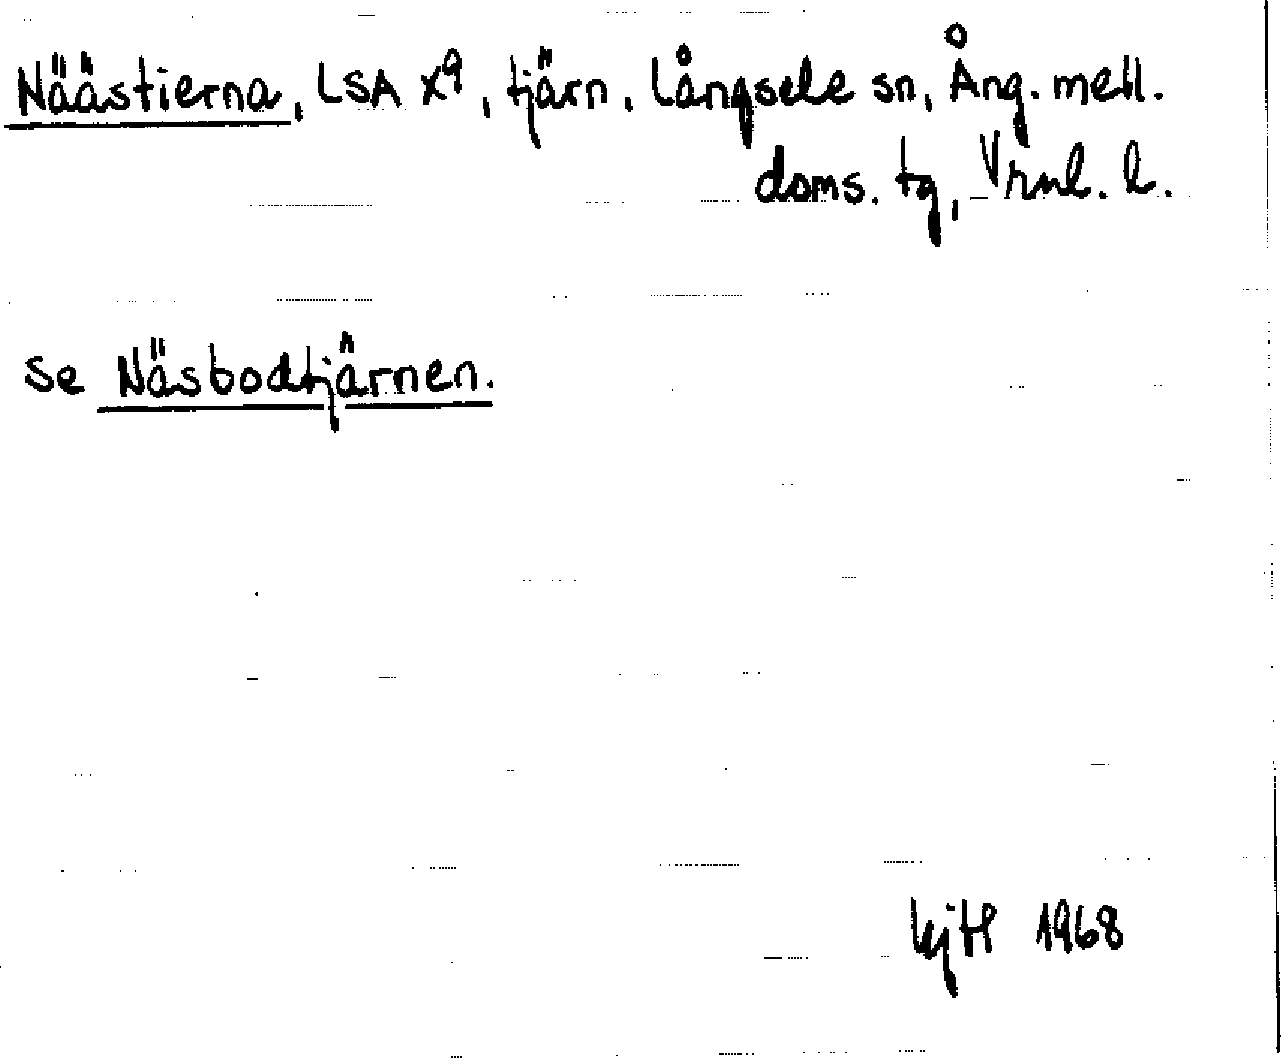 Näästierna, LSA x9, tjärn, Långsele sn, Ång. mell.
doms. tg, Vrnl. l.
se Näsbodtjärnen.
1968